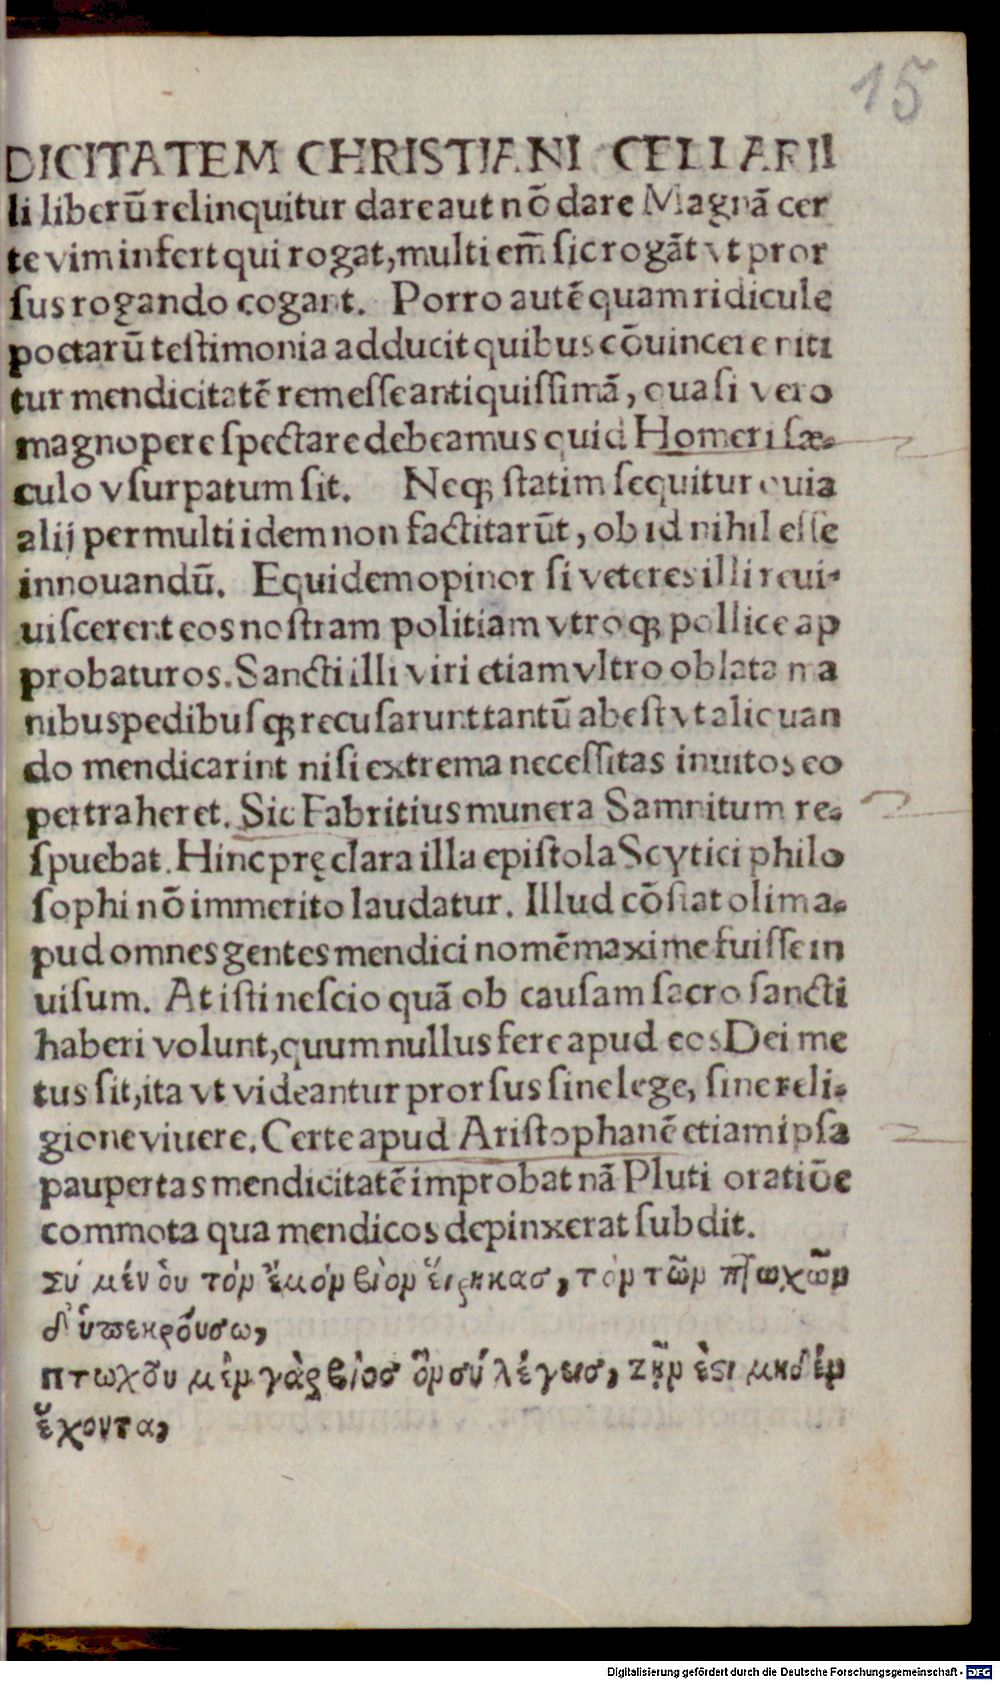 15
DICITATEM CHRISTIANI CELLARII
li liberū relinquitur dare aut nō dare Magnā cer
te vim infert qui rogat, multi em̄ sic rogāt vt pror
sus rogando cogant. Porro autē quam ridicule
poetarū testimonia adducit quibus cōuincere niti
tur mendicitatē rem esse antiquissimā, quasi vero
magnopere spectare debeamus quid Homeri sæ-
culo vsurpatum sit. Neqꝫ statim sequitur quia
alij permulti idem non factitarūt, ob id nihil esse
innouandū. Equidem opinor si veteres illi reui-
uiscerent eos nostram politiam vtroqꝫ pollice ap
probaturos. Sancti illi viri etiam vltro oblata ma
nibus pedibusqꝫ recusarunt tantū abest vt alicuan
do mendicarint nisi extrema necessitas inuitos eo
pertraheret. Sic Fabritius munera Samnitum re-
spuebat. Hinc pręclara illa epistola Scytici philo
sophi nō immerito laudatur. Illud cōstat olim a-
pud omnes gentes mendici nomē maxime fuisse in
uisum. At isti nescio quā ob causam sacro sancti
haberi volunt, quum nullus fere apud eos Dei me
tus sit, ita vt videantur prorsus sine lege, sine reli-
gione viuere. Certe apud Aristophanē etiam ipsa
paupertas mendicitatē improbat nā Pluti oratiōe
commota qua mendicos depinxerat subdit.
Σύ μέν ὀυ τὸν ἔμὸν βίον ἕιρηκασ, τὸν τῶν πτωχῶν
δ' ὑπεκρόυσω,
πτωχôυ μὲν γὰρ βίοσ ὃν σύ λέγεισ, ζῆν ἐστι μηδὲν
ἔχοντα,
Digitalisierung gefördert durch die Deutsche Forschungsgemeinschaft - DFG